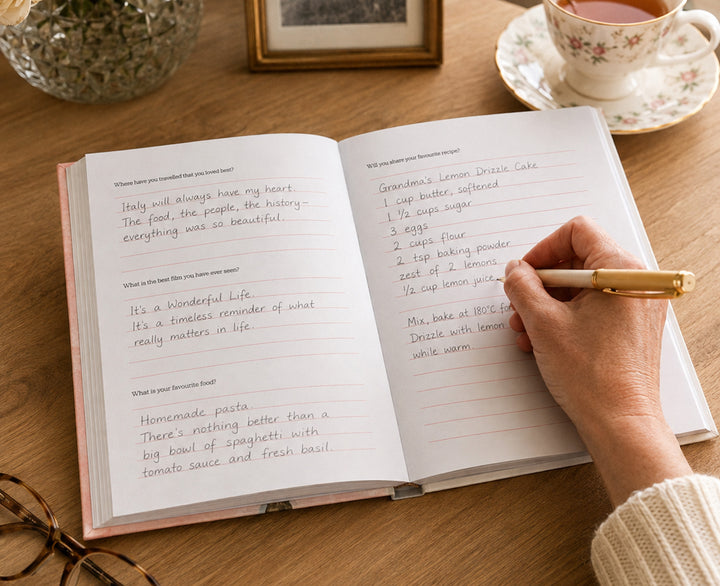 Where have you travelled that you loved best?
Italy will always have my heart.
The food, the people, the history—
everything was so beautiful.
What is the best film you have ever seen?
It's a Wonderful Life.
It's a timeless reminder of what
really matters in life.
What is your favourite food?
Homemade pasta.
There's nothing better than a
big bowl of spaghetti with
tomato sauce and fresh basil.
Will you share your favourite recipe?
Grandma's Lemon Drizzle Cake
1 cup butter, softened
1 1/2 cups sugar
3 eggs
2 cups flour
2 tsp baking powder
zest of 2 lemons
1/2 cup lemon juice
Mix, bake at 180°C for
Drizzle with lemon
while warm.